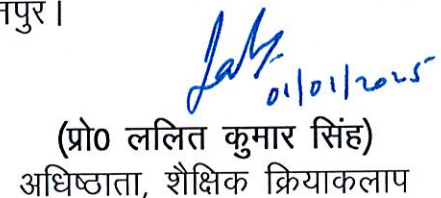 नपुर।
01/01/2025
(प्रो0 ललित कुमार सिंह)
अधिष्ठाता, शैक्षिक क्रियाकलाप